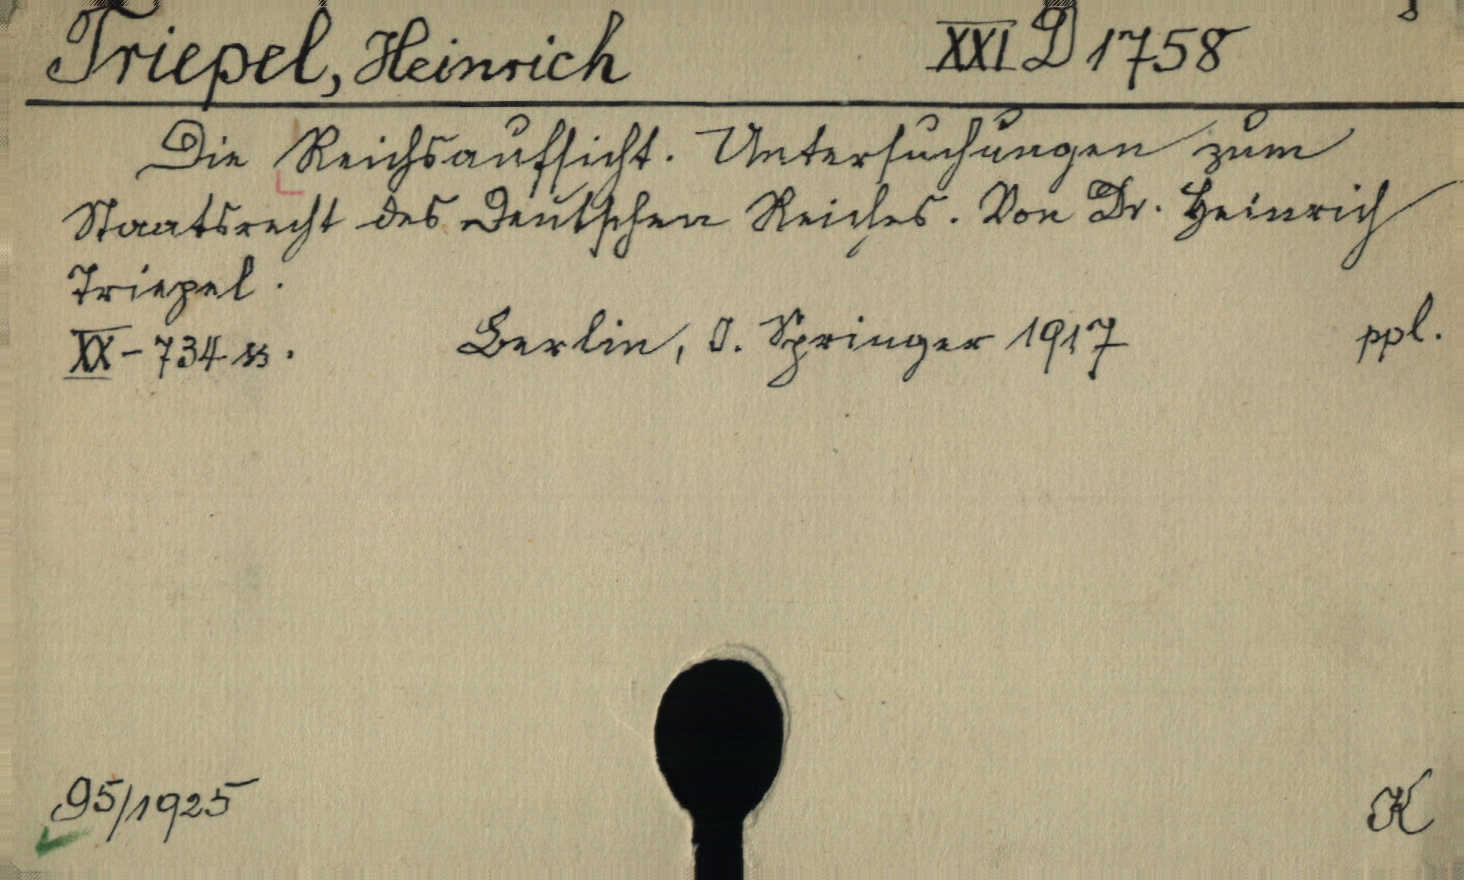 Triepel, Heinrich XXI D 1758
Die Reichsaufsicht. Untersuchungen zum
Staatsrecht des Deutschen Reiches. Von Dr. Heinrich
Triepel.
XX-734 ss. Berlin, J. Springer 1917 ppl.
95/1925 K